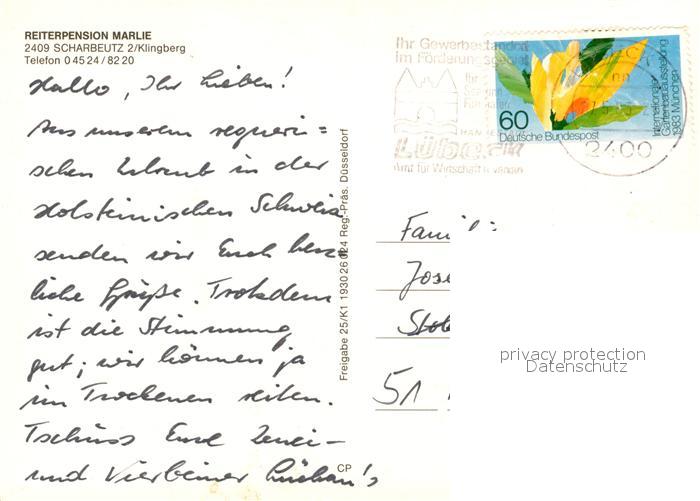 REITERPENSION MARLIE
2409 SCHARBEUTZ 2/Klingberg
Telefon 0 45 24 / 82 20
Hallo, Ihr Lieben!
Aus unserem regneri=
schen Urlaub in der
Holsteinischen Schweiz
senden wir Euch herz-
liche Grüße. Trotzdem
ist die Stimmung
gut; wir können ja
im Trockenen reiten.
Tschüss Eure Zwei-
und Vierbeiner
CP
Freigabe 25/K1 1930 26 024 Reg.-Präs. Düsseldorf
Ihr Gewerbestandort
im Fördergebiet
Lübeck
Amt für Wirtschaft
2400
60
Deutsche Bundespost
Internationale
Gartenbauausstellung
1983 München
Fami
Jose
51
privacy protection
Datenschutz